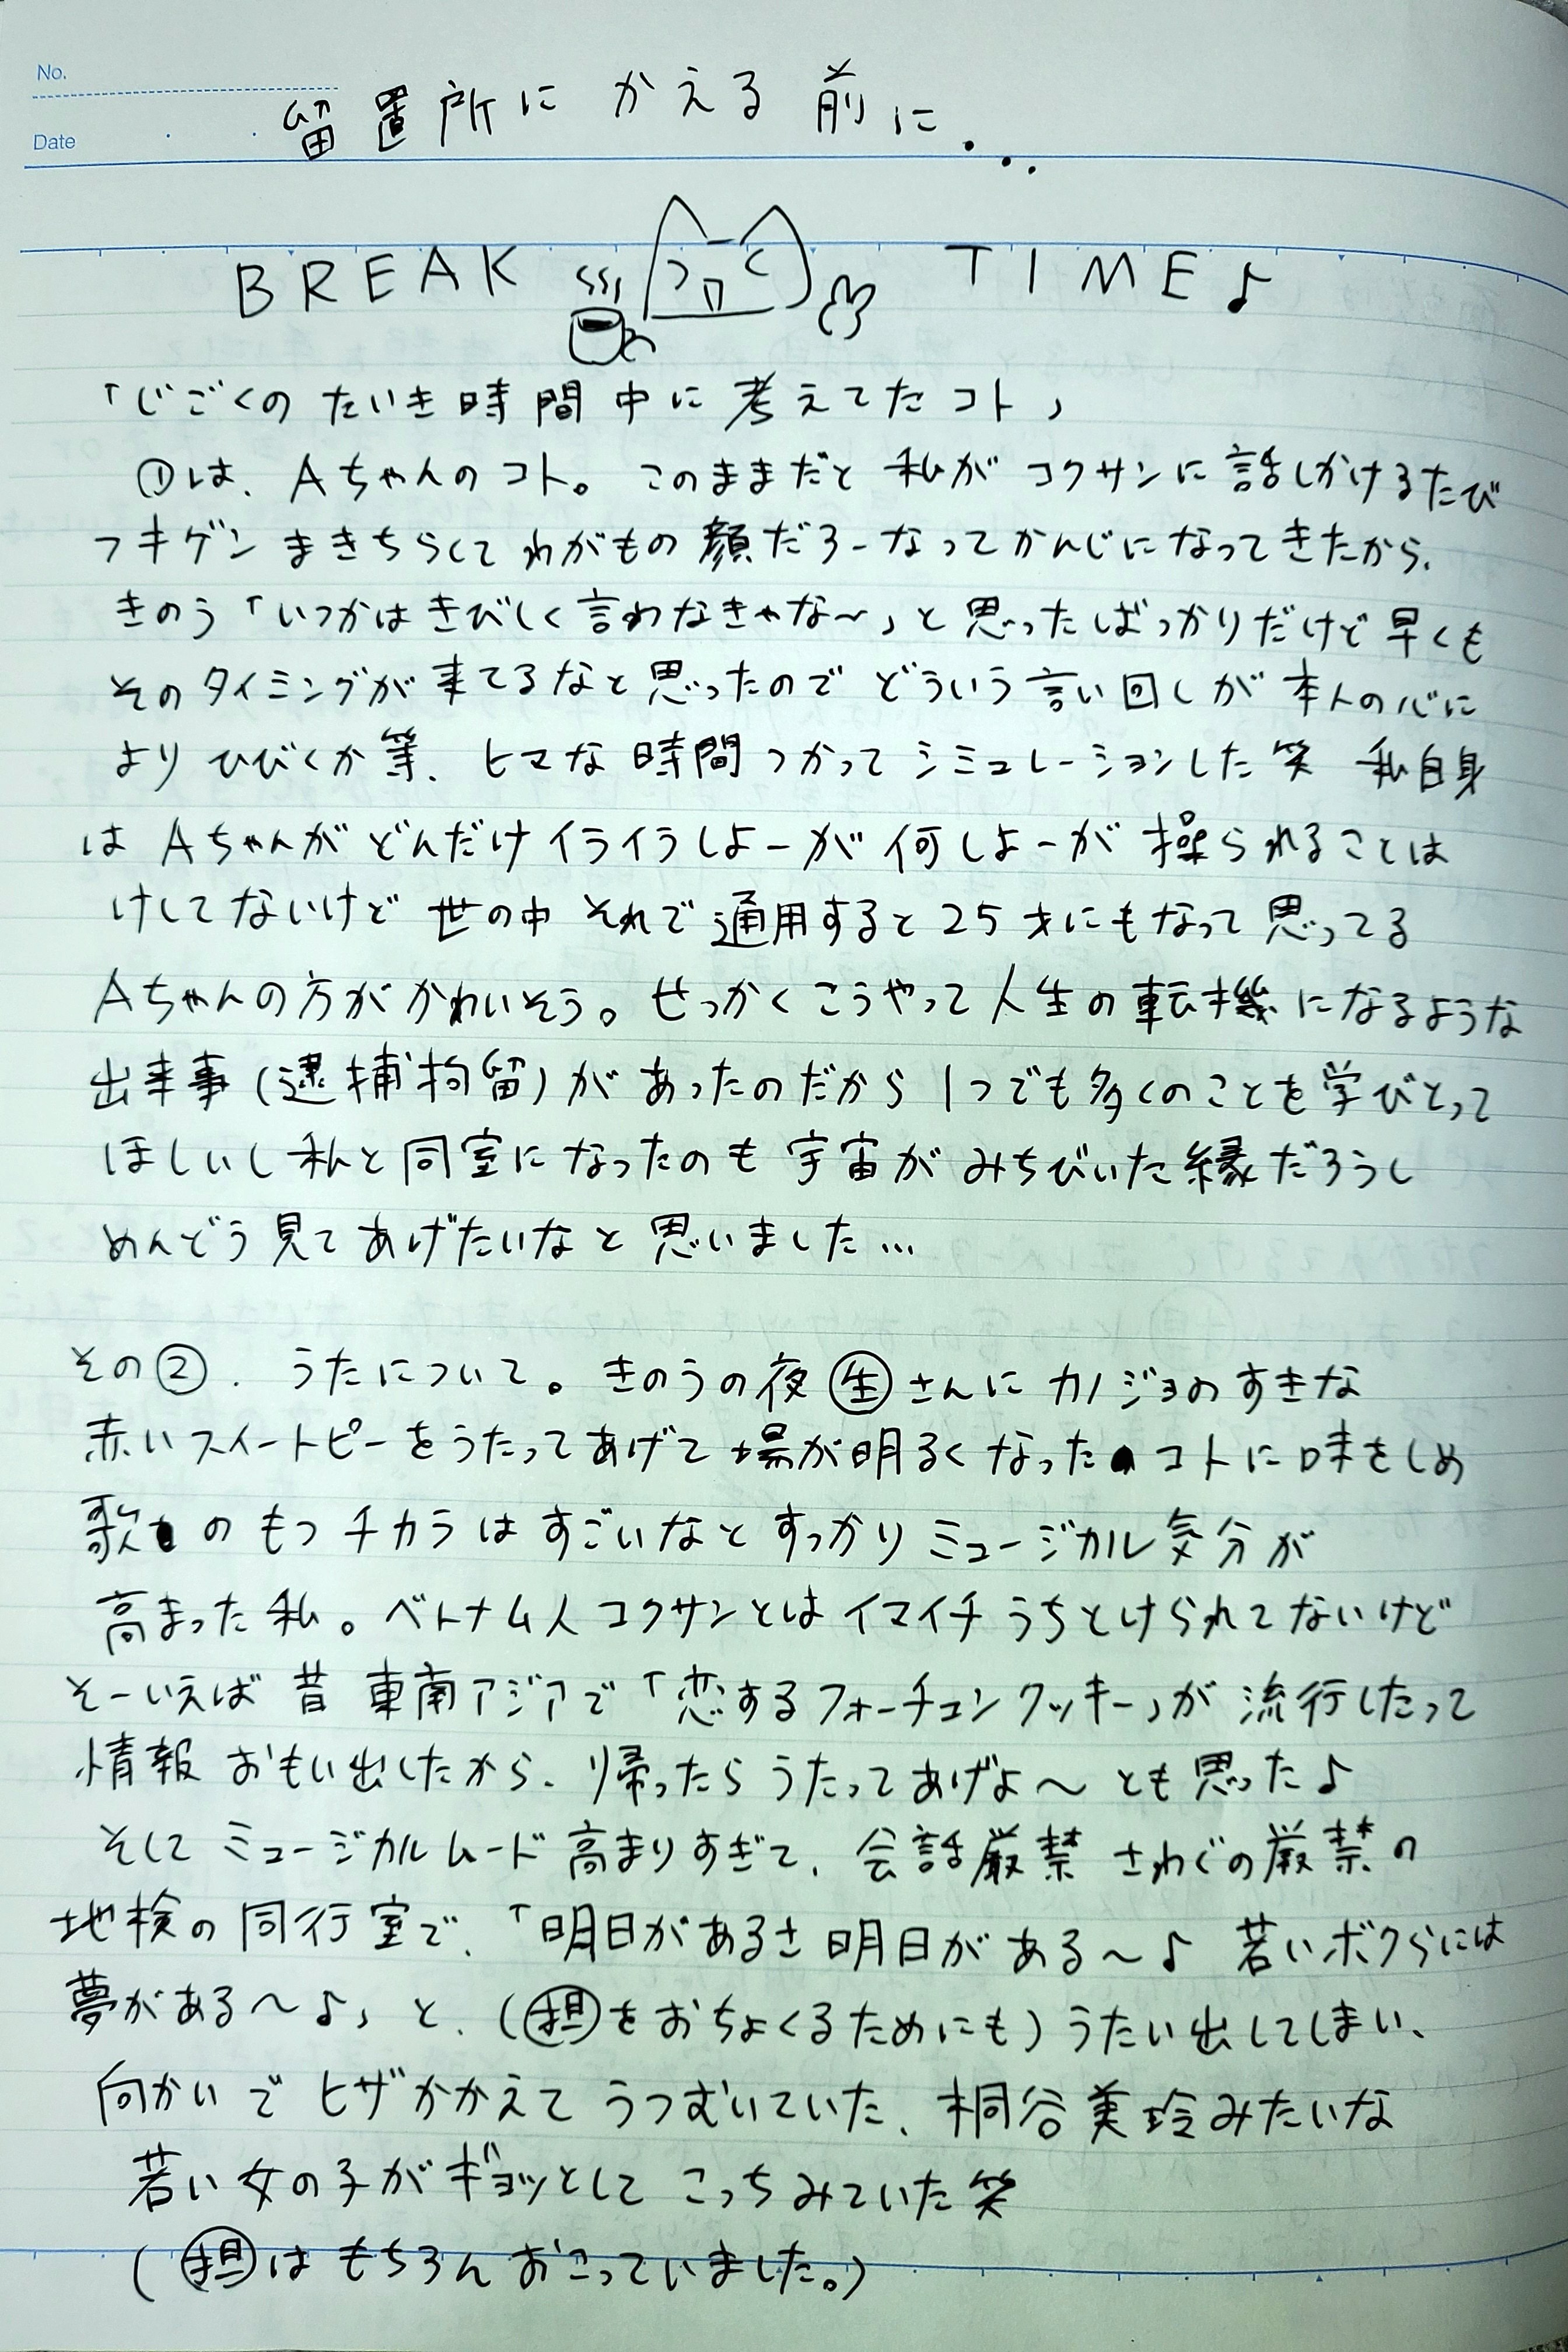 No.
Date
留置所にかえる前に...
BREAK TIME♪
「じごくのたいき時間中に考えてたコト」
①は、Aちゃんのコト。このままだと私がコクサンに話しかけるたび
フキゲンまきちらしてわがもの顔だろーなってかんじになってきたから、
きのう「いつかはきびしく言わなきゃな〜」と思ったばっかりだけど早くも
そのタイミングが来てるなと思ったのでどういう言い回しが本人の心に
よりひびくか等、ヒマな時間つかってシミュレーションした笑 私自身
はAちゃんがどんだけイライラしよーが何しよーが操られることは
けしてないけど世の中それで通用すると25才にもなって思ってる
Aちゃんの方がかわいそう。せっかくこうやって人生の転機になるような
出来事(逮捕拘留)があったのだから1つでも多くのことを学びとって
ほしいし私と同室になったのも宇宙がみちびいた縁だろうし
めんどう見てあげたいなと思いました...
その②. うたについて。きのうの夜㊤さんにカノジョのすきな
赤いスイートピーをうたってあげて場が明るくなったコトに味をしめ
歌のもつチカラはすごいなとすっかりミュージカル気分が
高まった私。ベトナム人コクサンとはイマイチうちとけられてないけど
そーいえば昔東南アジアで「恋するフォーチュンクッキー」が流行したって
情報おもい出したから、帰ったらうたってあげよ〜とも思った♪
そしてミュージカルムード高まりすぎて、会話厳禁さわぐの厳禁の
地検の同行室で、「明日があるさ明日がある〜♪ 若いボクらには
夢がある〜♪」と、(担をおちょくるためにも)うたい出してしまい、
向かいでヒザかかえてうつむいていた、桐谷美玲みたいな
若い女の子がギョッとしてこっちみていた笑
(担はもちろんおこっていました。)